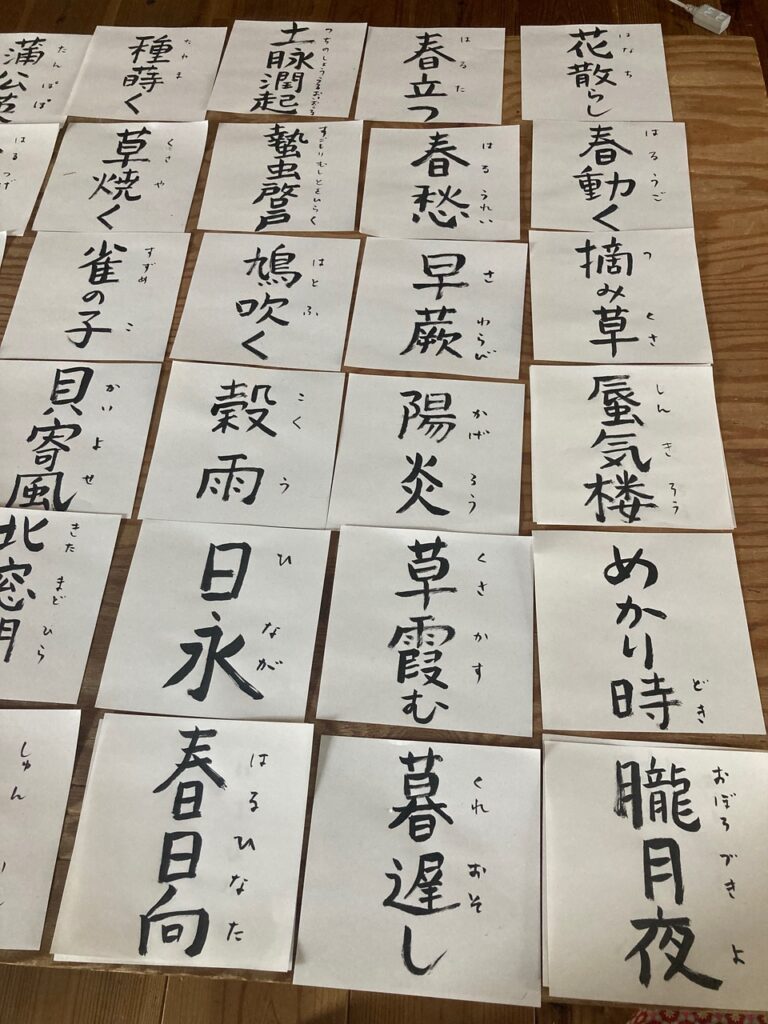 花散らし
はなち
春立つ
はるた
土脉潤起
つちのしょううるおいおこる
種蒔く
たねま
蒲公英
たんぽぽ
春動く
はるうご
春愁
はるうれい
蟄虫啓戸
すごもりむしとをひらく
草焼く
くさや
はるつげ
摘み草
つくさ
早蕨
さわらび
鳩吹く
はとふ
雀の子
すずめこ
蜃気楼
しんきろう
陽炎
かげろう
穀雨
こくう
貝寄風
かいよせ
めかり時
どき
草霞む
くさかす
日永
ひなが
北窓
きたまどひら
朧月夜
おぼろづきよ
暮遅し
くれおそ
春日向
はるひなた
しゅん